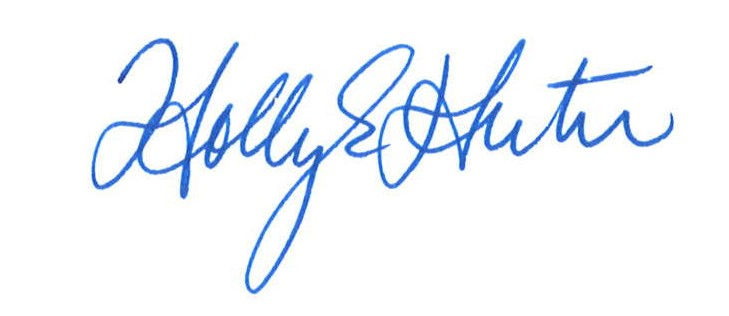 Holly E Hunter